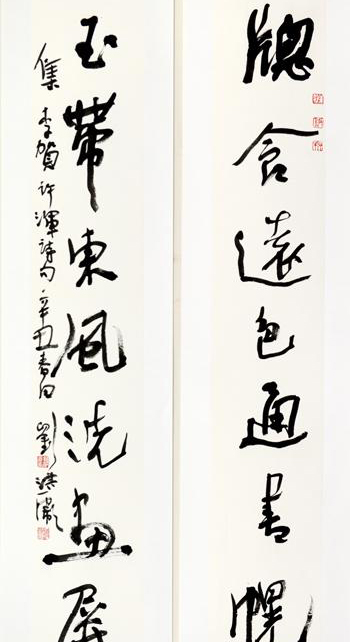 牕含遠色通書幌
雨帶東風洗畫屏
集李賀許渾詩句辛丑春日劉洪彪